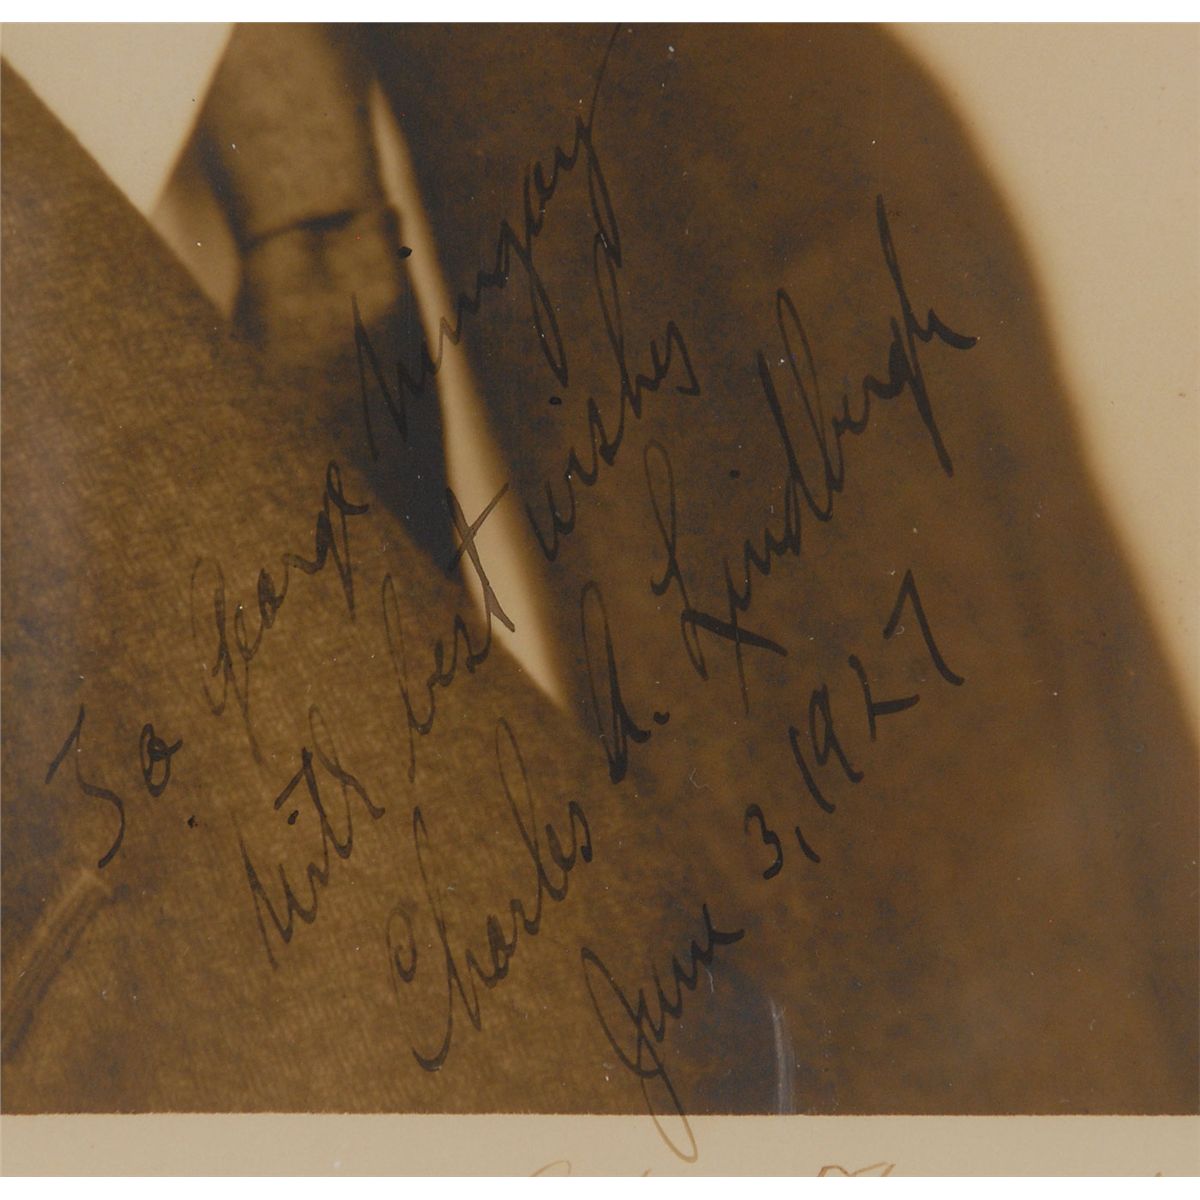 To George Mingay
With best wishes
Charles A. Lindbergh
June 3, 1927